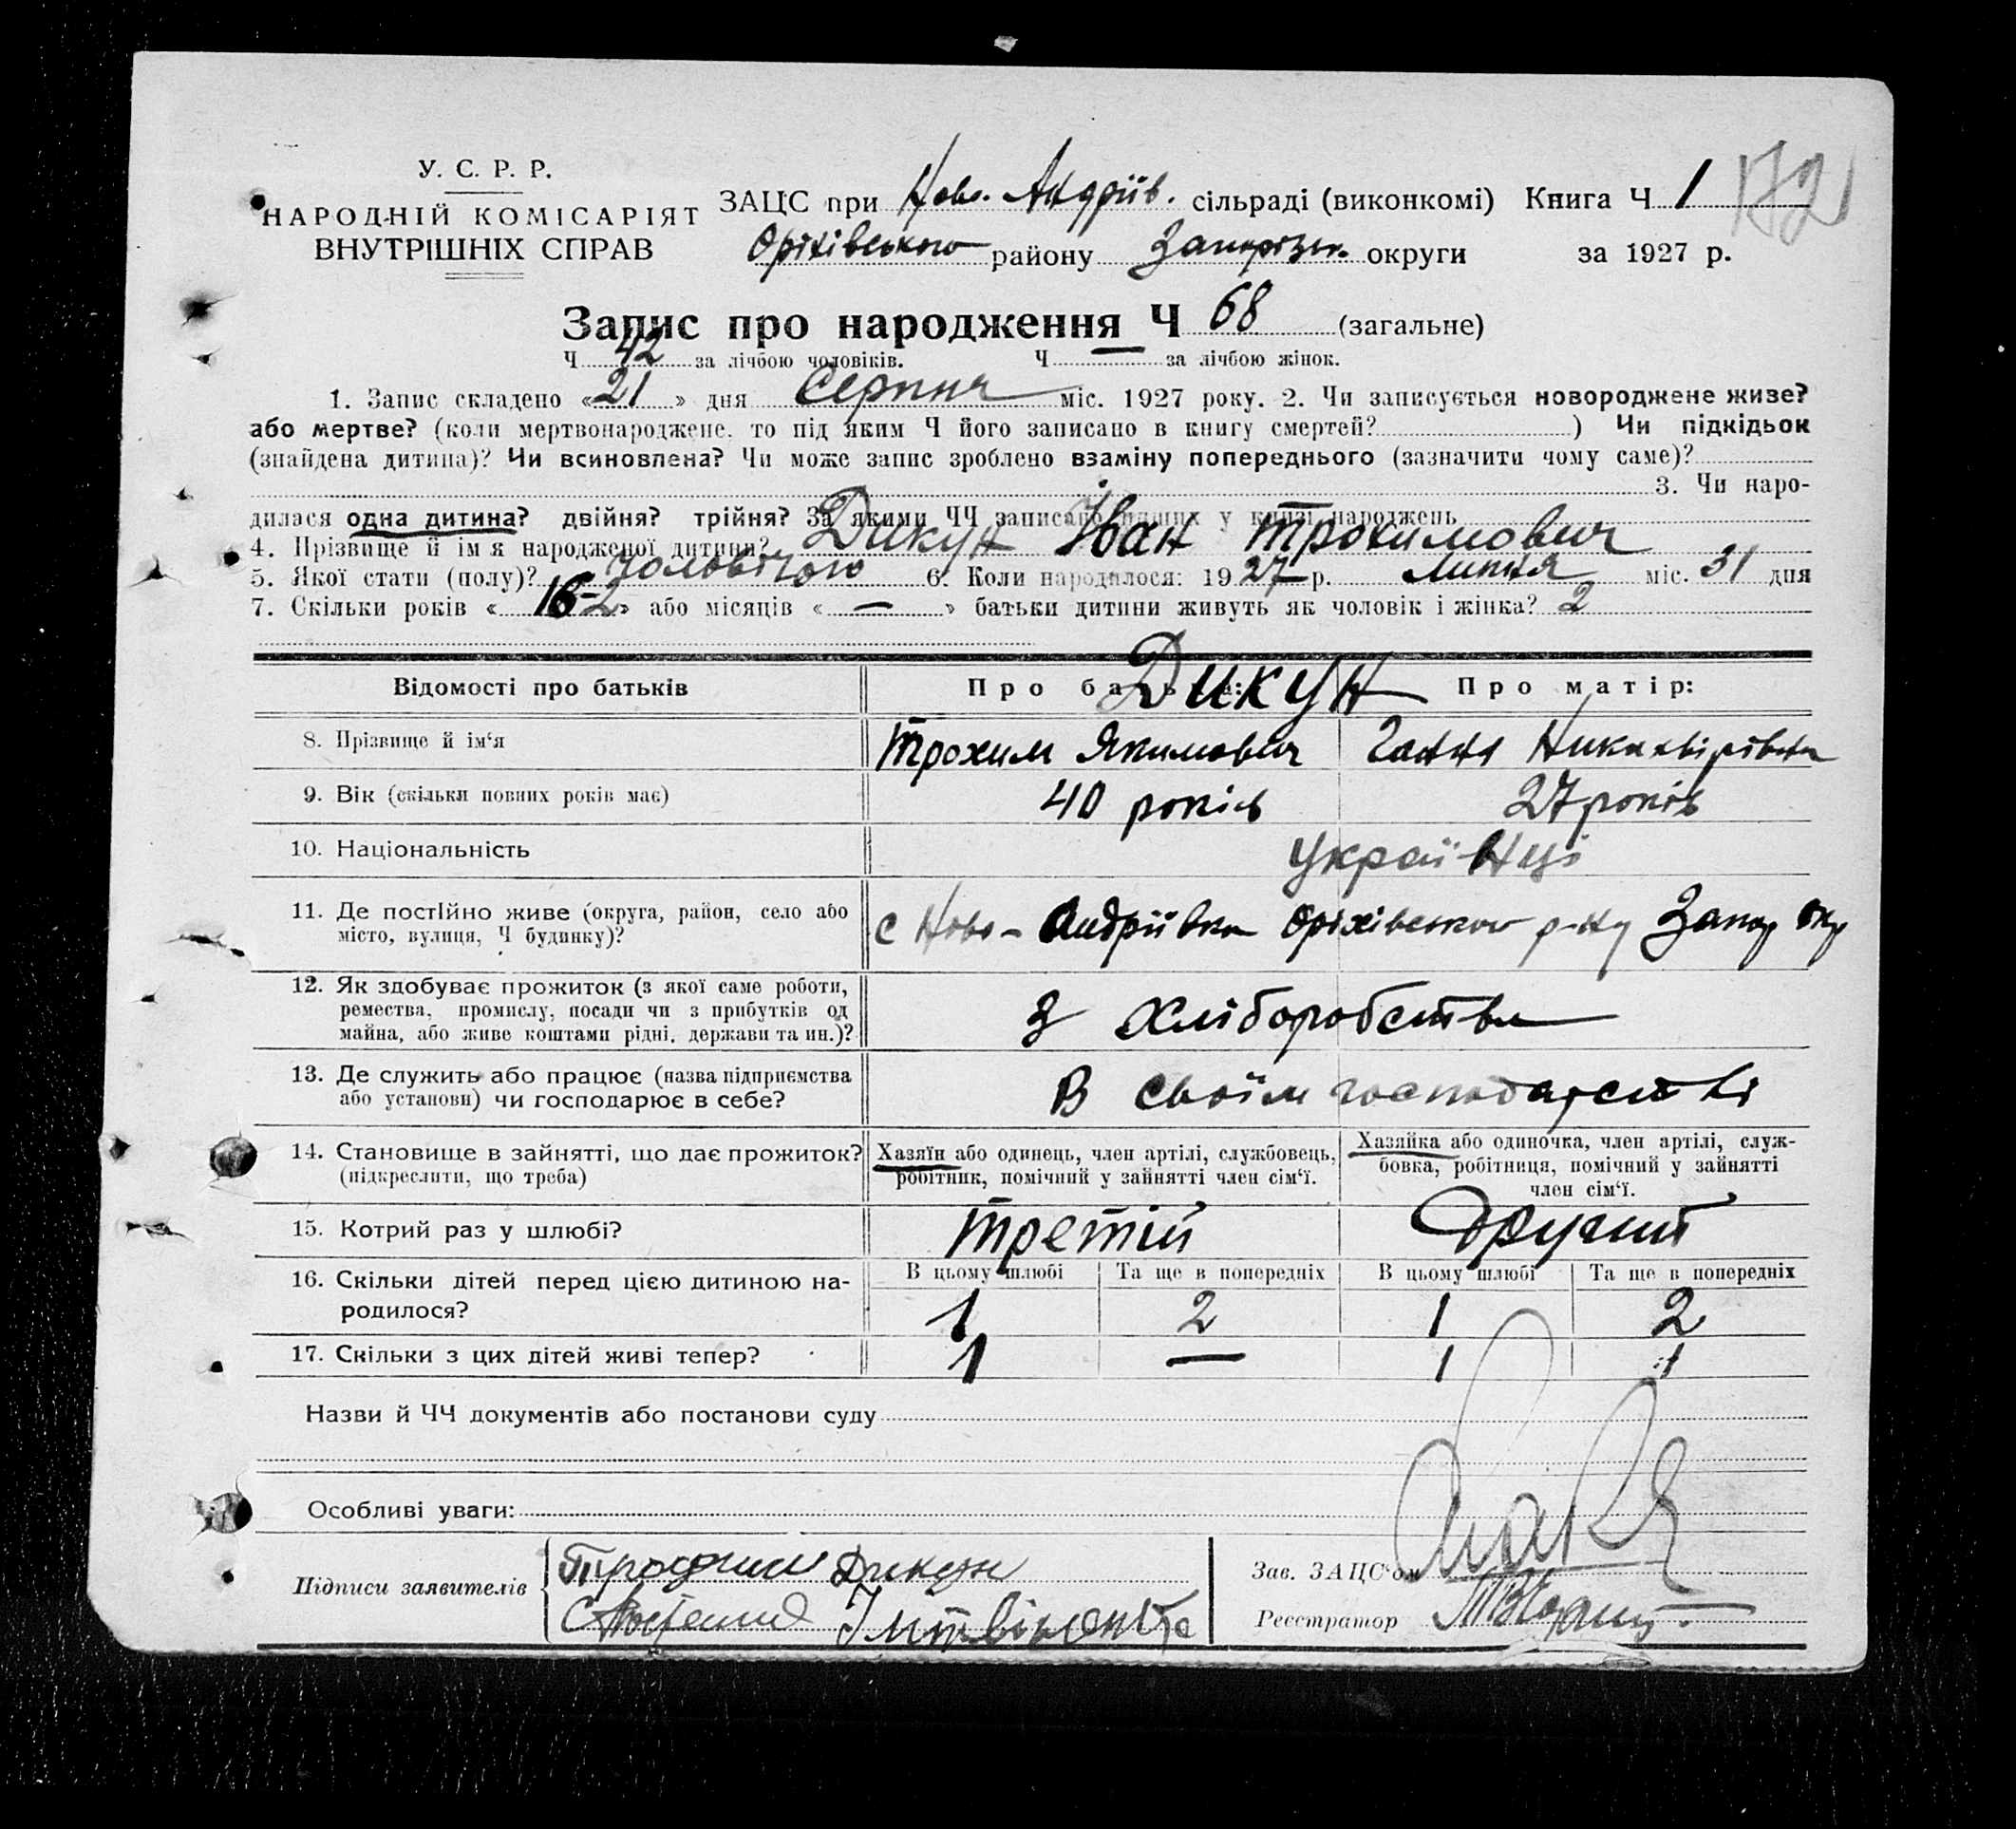 У. С. Р. Р.
НАРОДНІЙ КОМІСАРІЯТ
ВНУТРІШНІХ СПРАВ
ЗАЦС при Ново. Андріїв. сільраді (виконкомі) Книга Ч 1 172
Оріхівського району Запорізьк. округи за 1927 р.
Запис про народження Ч 68 (загальне)
Ч 42 за лічбою чоловіків. Ч — за лічбою жінок.
1. Запис складено «21» дня Серпня міс. 1927 року. 2. Чи записується новороджене живе?
або мертве? (коли мертвонароджене, то під яким Ч його записано в книгу смертей? ) Чи підкідьок
(знайдена дитина)? Чи всиновлена? Чи може запис зроблено взаміну попереднього (зазначити чому саме)?
3. Чи наро-
дилася одна дитина? двійня? трійня? За якими ЧЧ записано инших у книзі народжень
4. Прізвище й ім'я народженої дитини? Дикун Іван Трохимович
5. Якої стати (полу)? чоловічого 6. Коли народилося: 1927 р. Липня міс. 31 дня
7. Скільки років « 2» або місяців « — » батьки дитини живуть як чоловік і жінка? 2
Відомості про батьків Про батька: Про матір:
Дикун
8. Прізвище й ім'я Трохим Якимович Ганна Никанірівна
9. Вік (скільки повних років має) 40 років 27 років
10. Національність Українці
11. Де постійно живе (округа, район, село або
місто, вулиця, Ч будинку)? с Ново-Андріївка Оріхівського р-ну Запор окр
12. Як здобуває прожиток (з якої саме роботи,
ремества, промислу, посади чи з прибутків од
майна, або живе коштами рідні, держави та ин.)? З хліборобства
13. Де служить або працює (назва підприємства
або установи) чи господарює в себе? В своїм господарстві
14. Становище в зайнятті, що дає прожиток?
(підкреслити, що треба)
Хазяїн або одинець, член артілі, службовець,
робітник, помічний у зайнятті член сім'ї.
Хазяйка або одиночка, член артілі, служ-
бовка, робітниця, помічний у зайнятті
член сім'ї.
15. Котрий раз у шлюбі? третій Другий
16. Скільки дітей перед цією дитиною на-
родилося?
В цьому шлюбі Та ще в попередніх В цьому шлюбі Та ще в попередніх
1 2 1 2
17. Скільки з цих дітей живі тепер? 1 — 1 1
Назви й ЧЧ документів або постанови суду
Особливі уваги:
Підписи заявителів Трофим Дикун
Зав. ЗАЦС'ом
Реєстратор